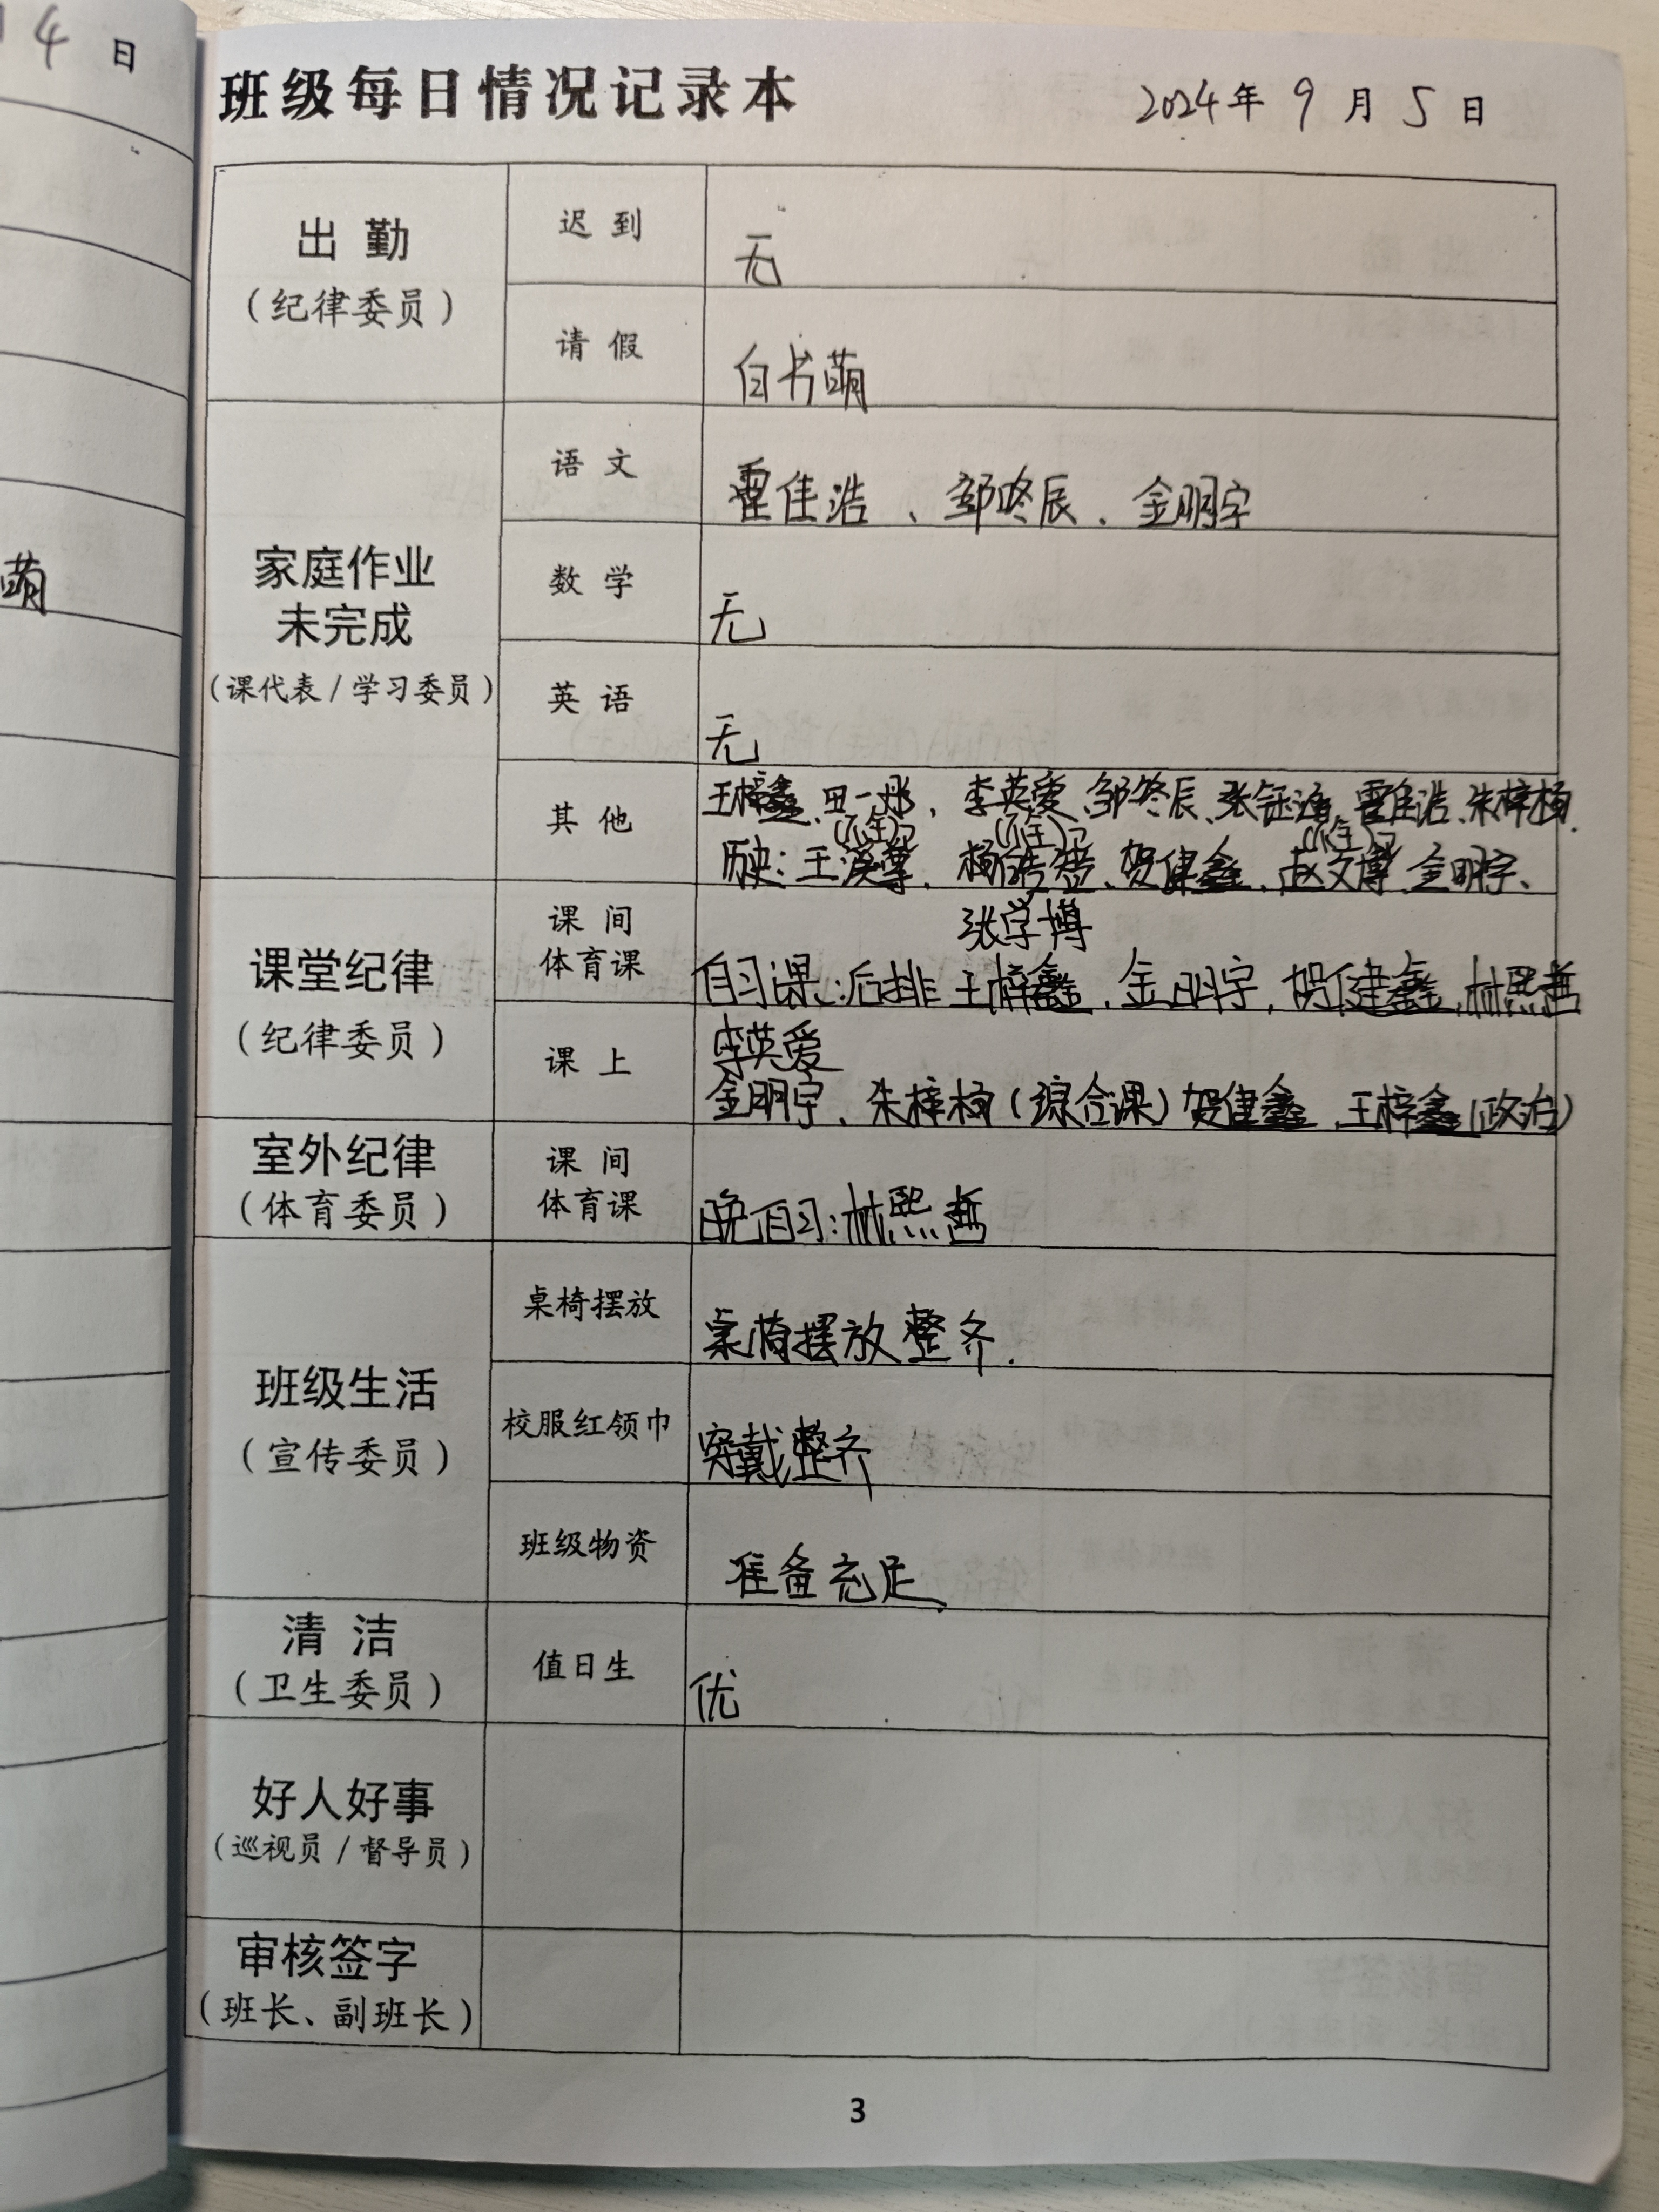 4 日
萌
班级每日情况记录本
2024年 9 月 5 日
出 勤
(纪律委员)
迟 到
无
请 假
白书萌
家庭作业
未完成
(课代表/学习委员)
语 文
霍佳浩、邹咚辰、金明宇
数 学
无
英 语
无
其 他
王梓鑫、田一彤、李英爱、邹咚辰、张钰涵、霍佳浩、朱梓杨、
(不全) (不全) (不全)
历史:王溪尊、杨皓喆、贺健鑫、赵文博、金明宇、
张学博
课堂纪律
(纪律委员)
课 间
体育课
自习课:后排 王梓鑫、金明宇,贺健鑫,林熙哲
课 上
李英爱
金明宇、朱梓杨(综合课)贺健鑫、王梓鑫(政治)
室外纪律
(体育委员)
课 间
体育课
晚自习:林熙哲
班级生活
(宣传委员)
桌椅摆放
桌椅摆放整齐.
校服红领巾
穿戴整齐
班级物资
准备充足.
清 洁
(卫生委员)
值日生
优
好人好事
(巡视员/督导员)
审核签字
(班长、副班长)
3